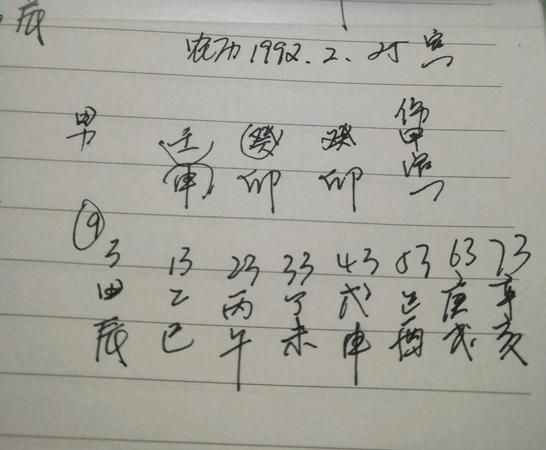 辰
农历1992.2.25 寅
男 壬 癸 癸 伤甲
申 卯 卯 寅
9
3 13 23 33 43 53 63 73
甲 乙 丙 丁 戊 己 庚 辛
辰 巳 午 未 申 酉 戌 亥